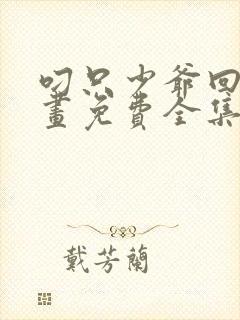 叼只少爷回
畫免費全集
戴芳蘭